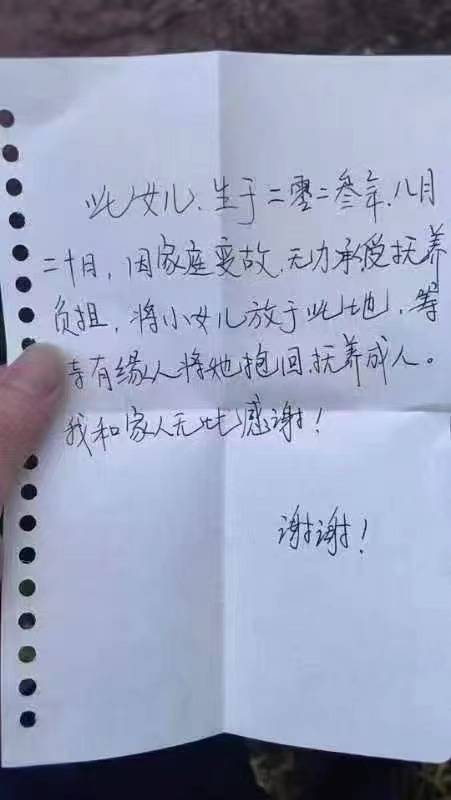 此女儿、生于二零二叁年、八月
二十日，因家庭变故，无力承受抚养
负担，将小女儿放于此地，等
待有缘人将她抱回、抚养成人。
我和家人无比感谢！
谢谢！